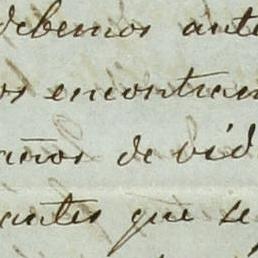 debemos ante
os encontram
años de vid
antes que se